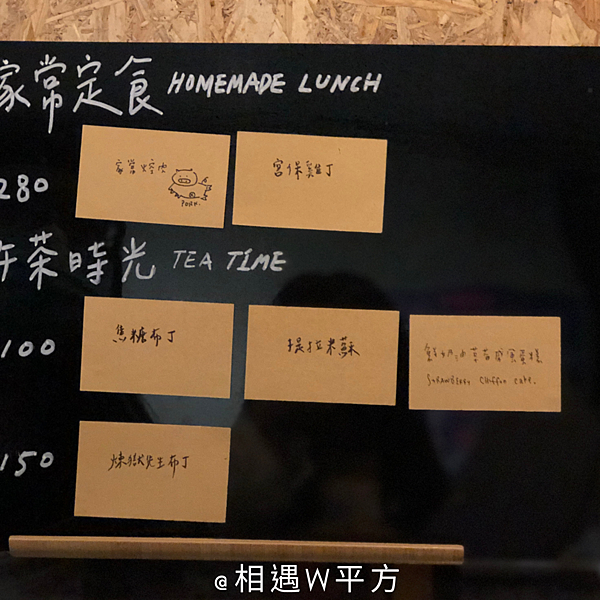 家常定食 HOMEMADE LUNCH
280
家常焢肉
PORK.
宮保雞丁
午茶時光 TEA TIME
100
焦糖布丁
提拉米蘇
鮮奶油草莓戚風蛋糕
STRAWBERRY Chiffon cake.
150
煉獄先生布丁
@相遇W平方